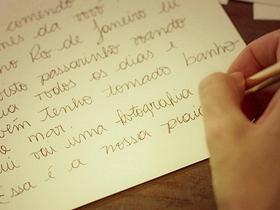 comendo
mês da vovó
no Rio de Janeiro eu
passarinho voando
todos os dias e
tenho tomado banho
mar.
vai uma fotografia
Essa é a nossa praia